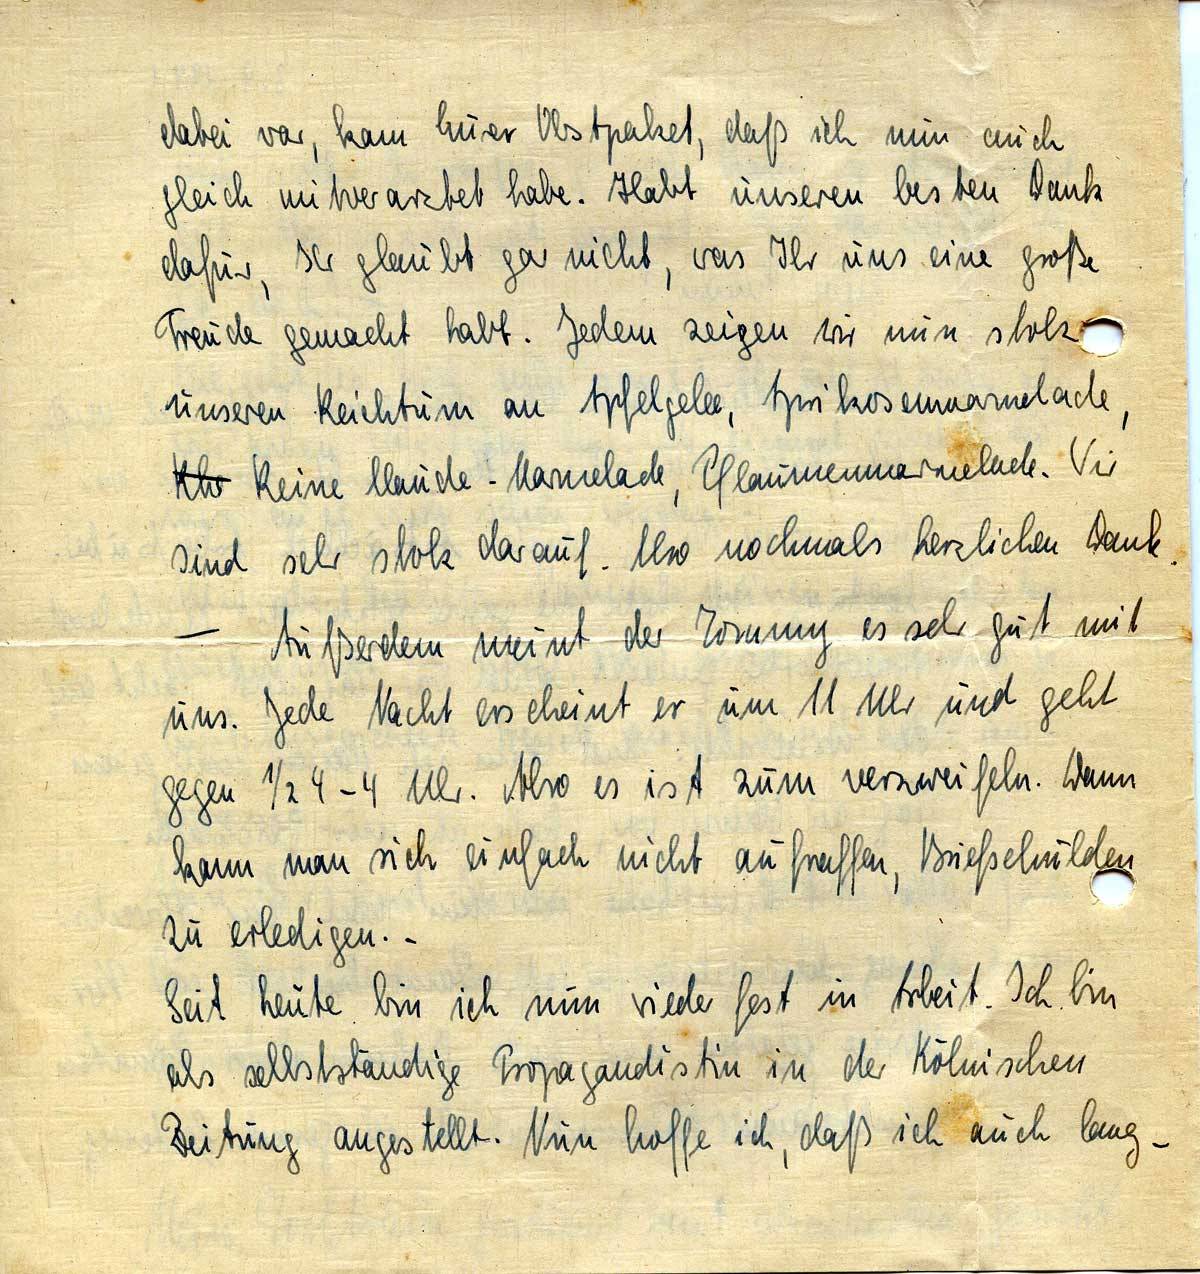 dabei war, kam Euer Obstpaket, daß ich nun auch
gleich mitverarztet habe. Habt unseren besten Dank
dafür, Ihr glaubt gar nicht, was Ihr uns eine große
Freude gemacht habt. Jedem zeigen wir nun stolz
unseren Reichtum an Apfelgelee, Aprikosenmarmelade,
Reine Claude-Marmelade, Pflaumenmarmelade. Wir
sind sehr stolz darauf. Also nochmals herzlichen Dank.
— Außerdem meint der Tommy es sehr gut mit
uns. Jede Nacht erscheint er um 11 Uhr und geht
gegen 1/2 4 - 4 Uhr. Also es ist zum verzweifeln. Dann
kann man sich einfach nicht aufraffen, Briefschulden
zu erledigen. -
Seit heute bin ich nun wieder fest in Arbeit. Ich bin
als selbstständige Propagandistin in der Kölnischen
Zeitung angestellt. Nun hoffe ich, daß ich auch lang-